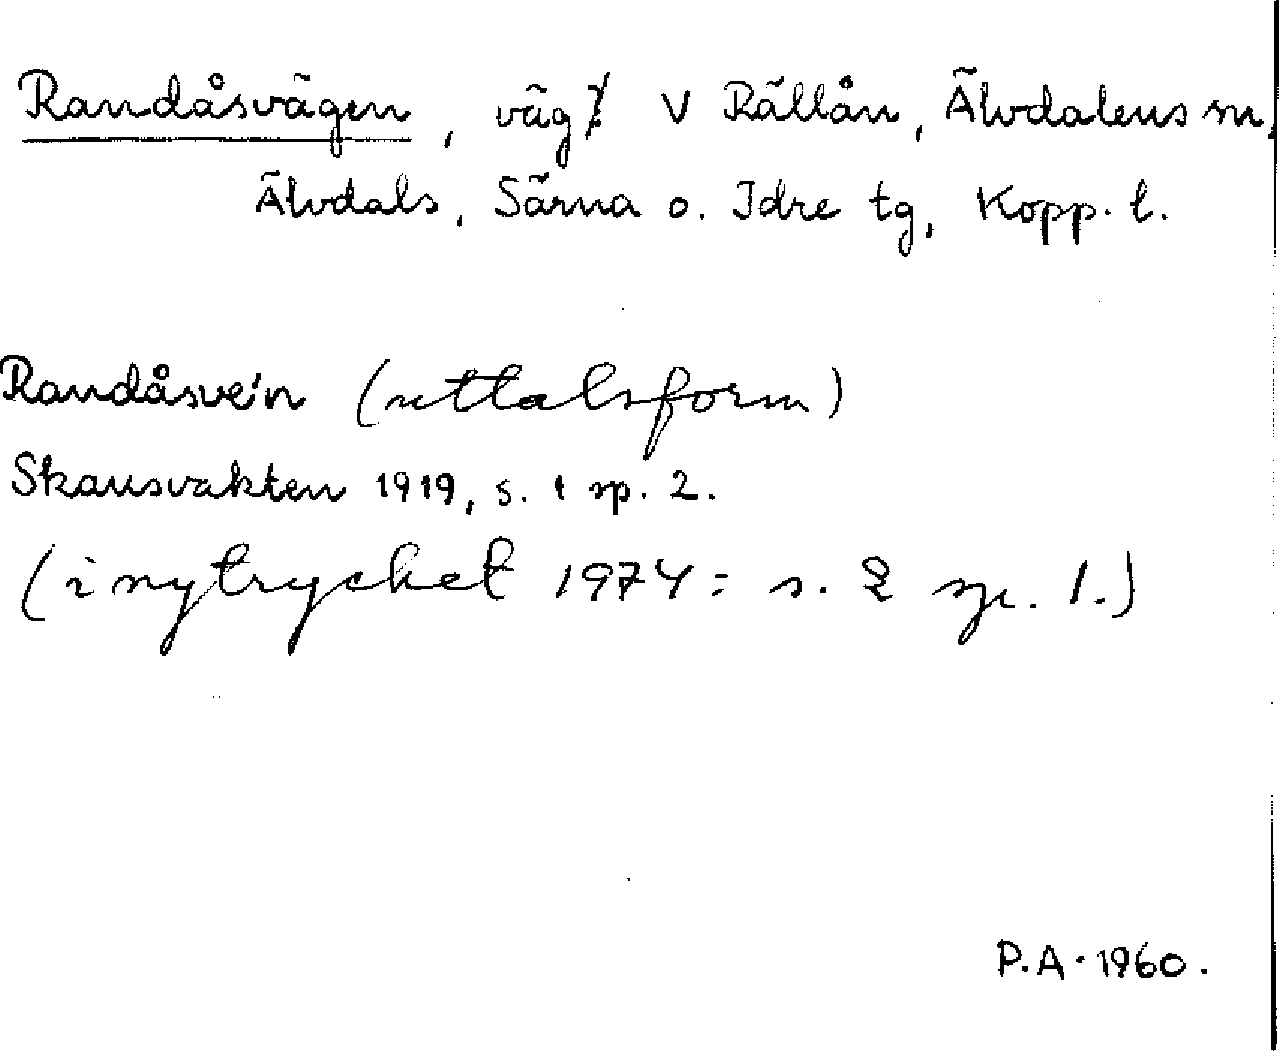 Randåsvägen, väg V Rällån, Älvdalens sn,
Älvdals, Särna o. Idre tg, Kopp. l.
Randåsve'n (uttalsform)
Skansvakten 1919, s. 1 sp. 2.
(i nytrycket 1974: s. 2 sp. 1.)
P.A. 1960.